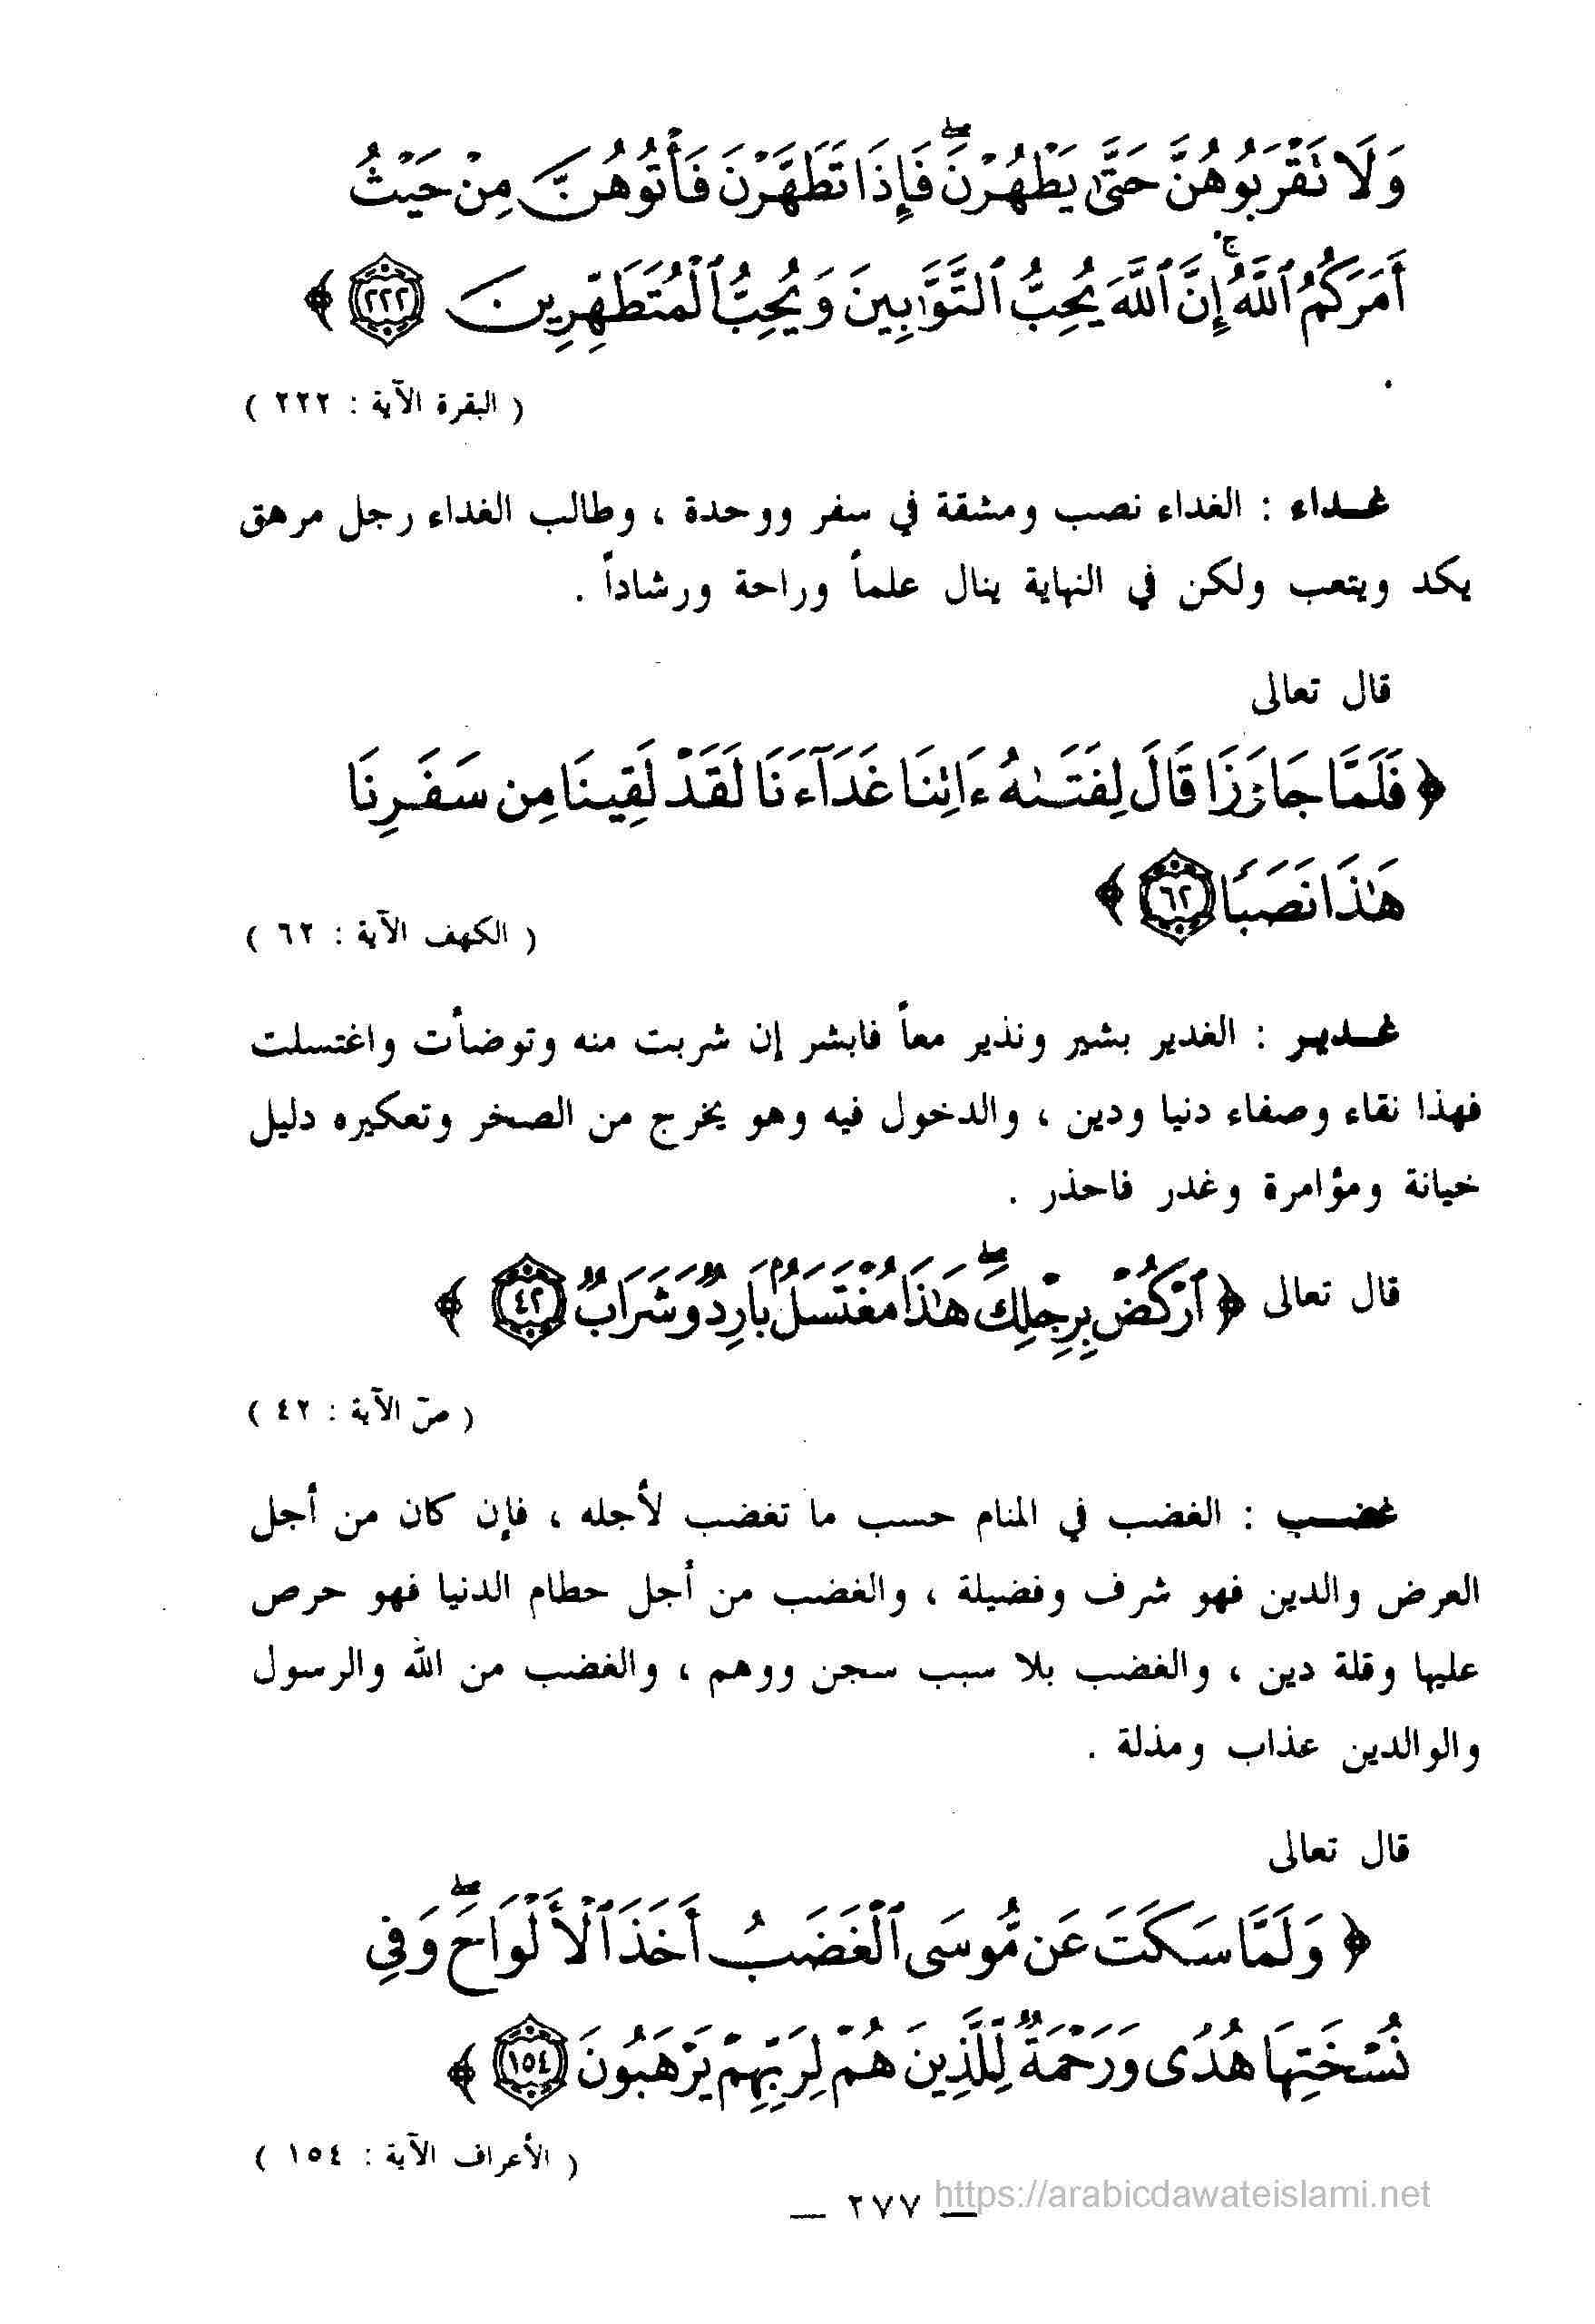 وَلَا نَقْرَبُوهُنَّ حَتَّىٰ يَطْهُرْنَ ۖ فَإِذَا تَطَهَّرْنَ فَأْتُوهُنَّ مِنْ حَيْثُ
أَمَرَكُمُ ٱللَّهُ ۚ إِنَّ ٱللَّهَ يُحِبُّ ٱلتَّوَّٰبِينَ وَيُحِبُّ ٱلْمُتَطَهِّرِينَ ٢٢٢ ﴾
( البقرة الآية : ٢٢٢ )
غـداء : الغداء نصب ومشقة في سفر ووحدة ، وطالب الغداء رجل مرهق
يكد ويتعب ولكن في النهاية ينال علماً وراحة ورشاداً .
قال تعالى
﴿ فَلَمَّا جَاوَزَا قَالَ لِفَتَىٰهُ ءَاتِنَا غَدَآءَنَا لَقَدْ لَقِينَا مِن سَفَرِنَا
هَٰذَا نَصَبًا ٦٢ ﴾
( الكهف الآية : ٦٢ )
غـديـر : الغدير بشير ونذير معاً فابشر إن شربت منه وتوضأت واغتسلت
فهذا نقاء وصفاء دنيا ودين ، والدخول فيه وهو يخرج من الصخر وتعكيره دليل
خيانة ومؤامرة وغدر فاحذر .
قال تعالى ﴿ ٱرْكُضْ بِرِجْلِكَ ۖ هَٰذَا مُغْتَسَلٌۢ بَارِدٌ وَشَرَابٌ ٤٢ ﴾
( صّ الآية : ٤٢ )
غضـب : الغضب في المنام حسب ما تغضب لأجله ، فإن كان من أجل
العرض والدين فهو شرف وفضيلة ، والغضب من أجل حطام الدنيا فهو حرص
عليها وقلة دين ، والغضب بلا سبب سجن ووهم ، والغضب من الله والرسول
والوالدين عذاب ومذلة .
قال تعالى
﴿ وَلَمَّا سَكَتَ عَن مُّوسَى ٱلْغَضَبُ أَخَذَ ٱلْأَلْوَاحَ ۖ وَفِي
نُسْخَتِهَا هُدًى وَرَحْمَةٌ لِّلَّذِينَ هُمْ لِرَبِّهِمْ يَرْهَبُونَ ١٥٤ ﴾
( الأعراف الآية : ١٥٤ )
— ٢٧٧ —
https://arabicdawateislami.net